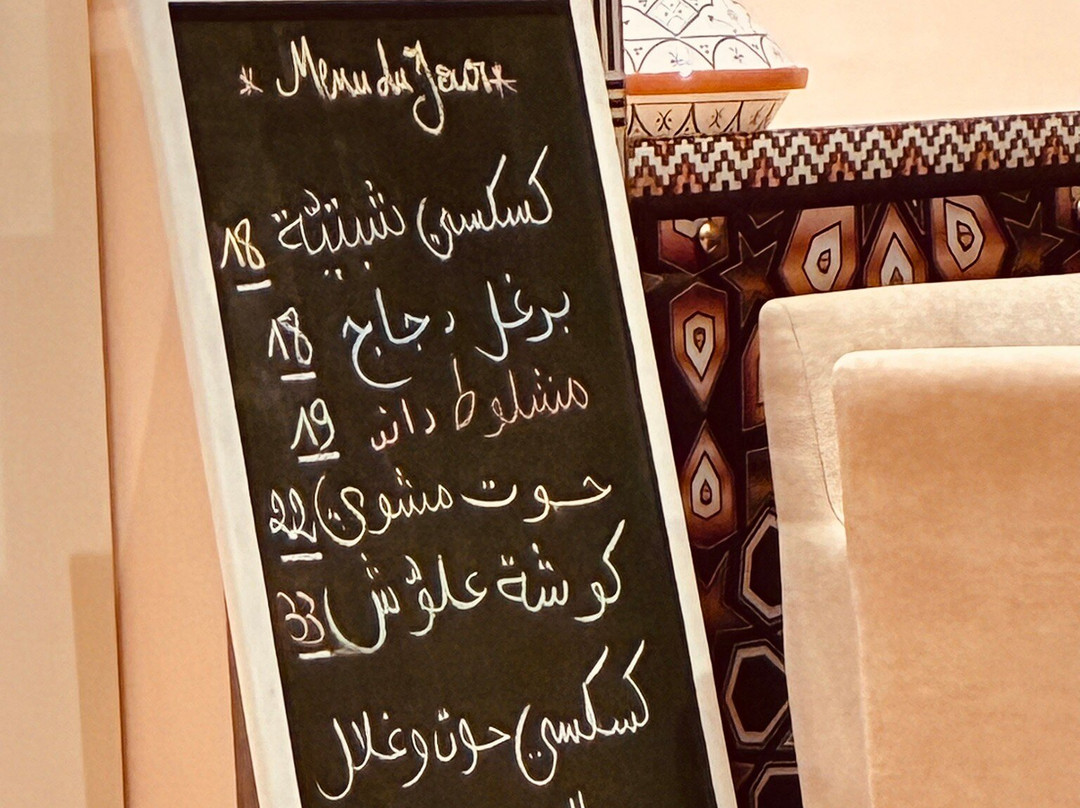 * Menu du Jour *
كسكسي شبتيّة 18
برغل دجاج 18
مشلوط داند 19
حوت مشوي 22
كوشة علوّش 33
كسكسي حوت وغلال